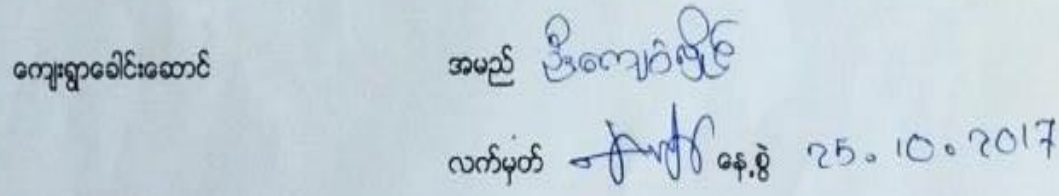 ကျေးရွာခေါင်းဆောင် အမည် ဦးကျော်လှိုင်
လက်မှတ် နေ့စွဲ 25.10.2017